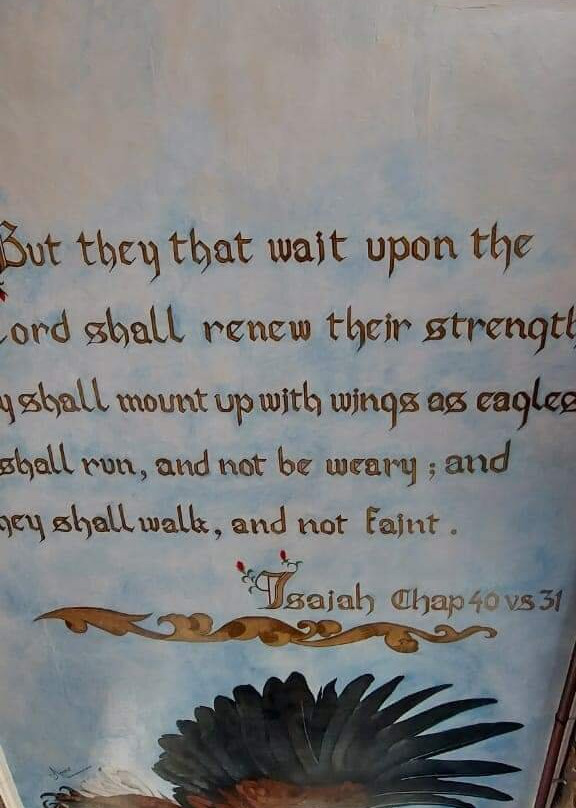 But they that wait upon the
Lord shall renew their strength
y shall mount up with wings as eagles
shall run, and not be weary ; and
hey shall walk, and not faint .
Isaiah Chap 40 vs 31